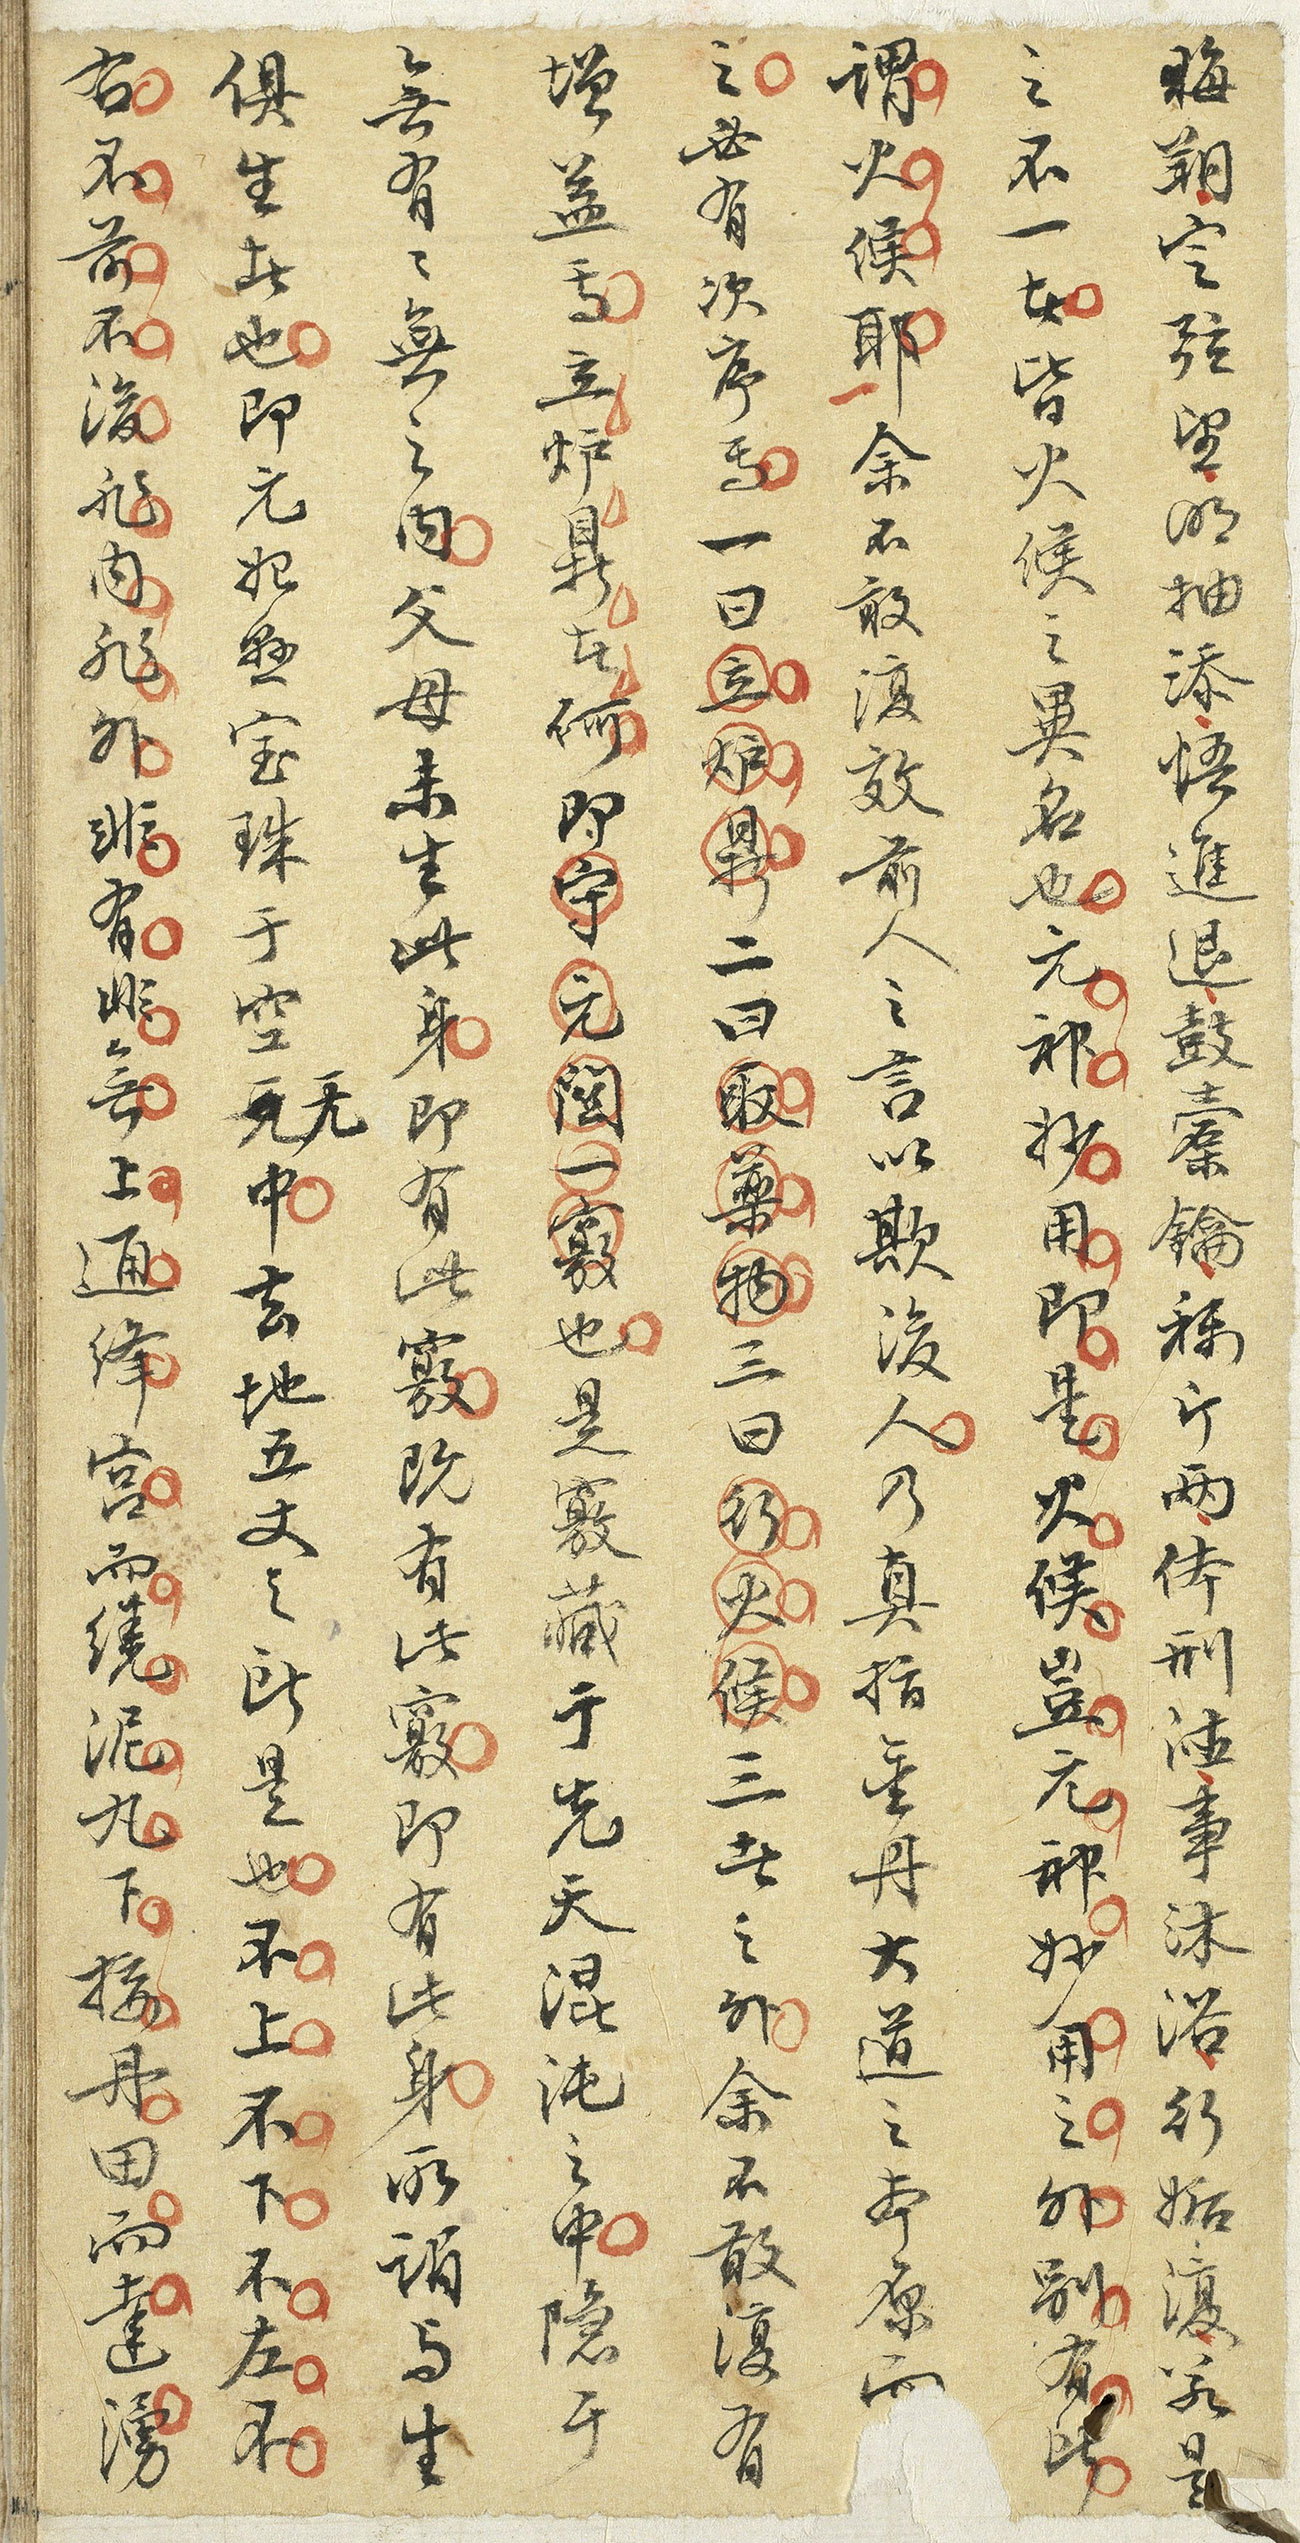 晦朔定弦望明抽添悟進退鼓橐籥稱斤兩体刑法事沐浴行姤復若是
之不一者皆火候之異名也元神妙用即是火候豈元神妙用之外別有所
謂火候耶余不敢復效前人之言以欺後人乃真指金丹大道之本原而
之必有次序焉一曰立炉鼎二曰取藥物三曰行火候三者之外余不敢復有
增益焉立炉鼎者何即守元関一竅也是竅藏于先天混沌之中隐于
無有〻無之内父母未生此身即有此竅既有此竅即有此身所謂与生
俱生者也即元始懸宝珠于空无中去地五丈之所是也不上不下不左不
右不前不後非内非外非有非無上通絳宮而繞泥丸下接丹田而達湧